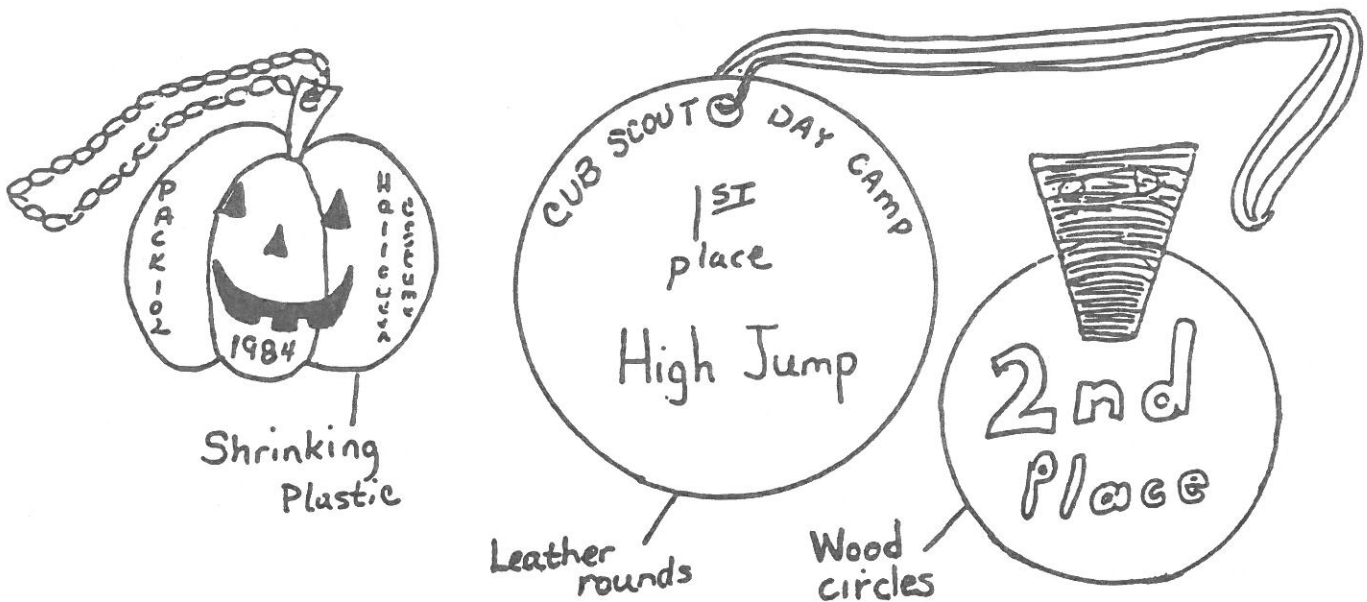 PACK 102
1984
Halloween
costume
Shrinking
Plastic
CUB SCOUT DAY CAMP
1ST
place
High Jump
Leather
rounds
2nd
Place
Wood
circles